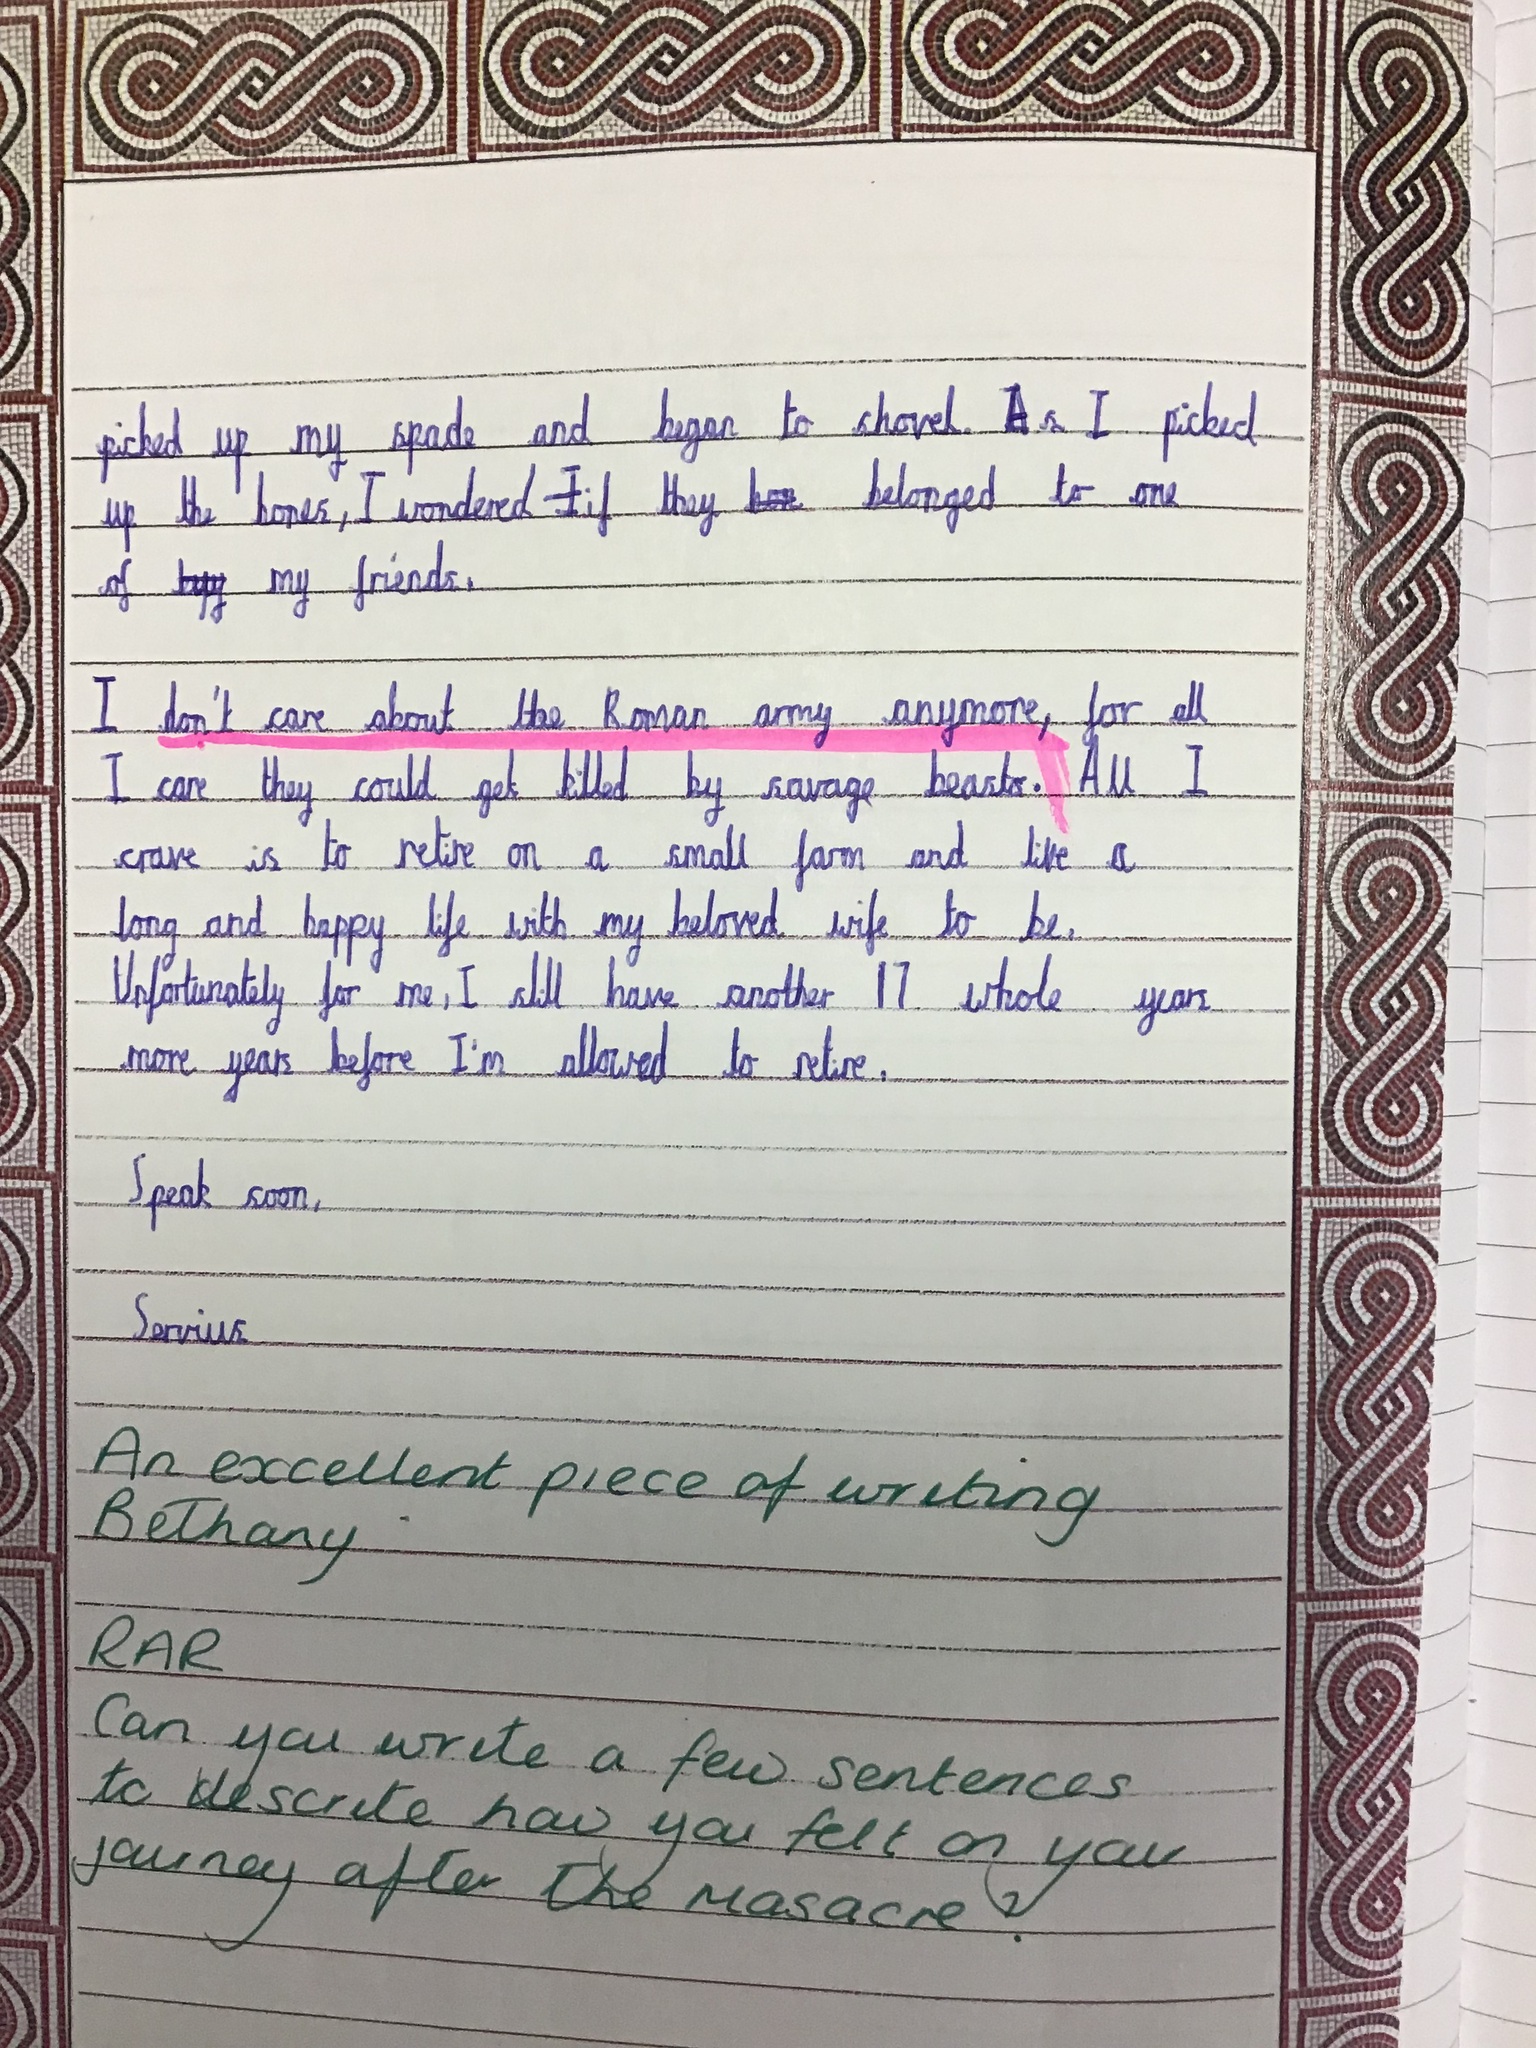 picked up my spade and began to shovel. As I picked
up the bones, I wondered I if they bon belonged to one
of my friends.
I don't care about the Roman army anymore, for all
I care they could get killed by savage beasts. All I
crave is to retire on a small farm and live a
long and happy life with my beloved wife to be.
Unfortunately for me, I still have another 17 whole years
more years before I'm allowed to retire.
Speak soon,
Servius
An excellent piece of writing
Bethany
RAR
Can you write a few sentences
to describe how you felt on your
journey after the masacre?